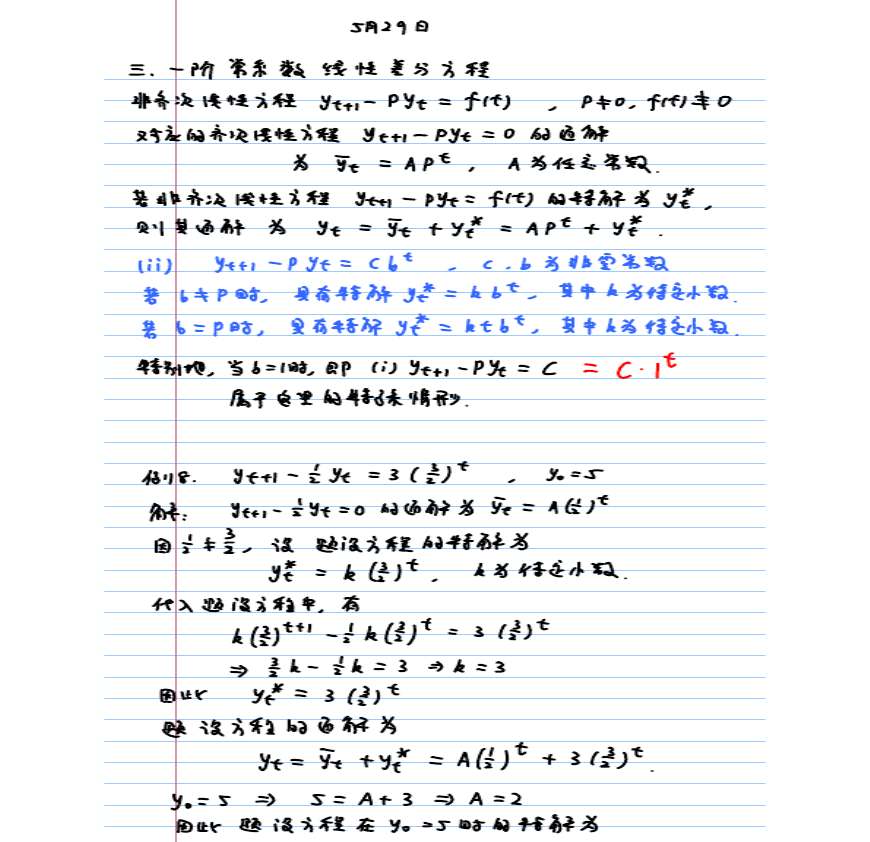 5月29日
三. 一阶常系数线性差分方程
非齐次线性方程 yₜ₊₁ - Pyₜ = f(t) , P≠0, f(t)≢0
对应的齐次线性方程 yₜ₊₁ - Pyₜ = 0 的通解
为 ȳₜ = APᵗ , A为任意常数.
若非齐次线性方程 yₜ₊₁ - Pyₜ = f(t) 的特解为 yₜ*,
则其通解为 yₜ = ȳₜ + yₜ* = APᵗ + yₜ*.
(ii) yₜ₊₁ - Pyₜ = Cbᵗ , C.b为非零常数
若 b≠P时, 具有特解 yₜ* = kbᵗ, 其中k为待定小数.
若 b=P时, 具有特解 yₜ* = ktbᵗ, 其中k为待定小数.
特别地, 当b=1时, 即 (i) yₜ₊₁ - Pyₜ = C = C·1ᵗ
属于这里的特殊情形.
例8. yₜ₊₁ - 1/2 yₜ = 3(3/2)ᵗ , y₀=5
解: yₜ₊₁ - 1/2 yₜ = 0 的通解为 ȳₜ = A(1/2)ᵗ
因 1/2 ≠ 3/2, 设题设方程的特解为
yₜ* = k(3/2)ᵗ, k为待定小数.
代入题设方程中, 有
k(3/2)ᵗ⁺¹ - 1/2 k(3/2)ᵗ = 3(3/2)ᵗ
⇒ 3/2 k - 1/2 k = 3 ⇒ k = 3
因此 yₜ* = 3(3/2)ᵗ
题设方程的通解为
yₜ = ȳₜ + yₜ* = A(1/2)ᵗ + 3(3/2)ᵗ.
y₀=5 ⇒ 5=A+3 ⇒ A=2
因此 题设方程在 y₀=5时的特解为